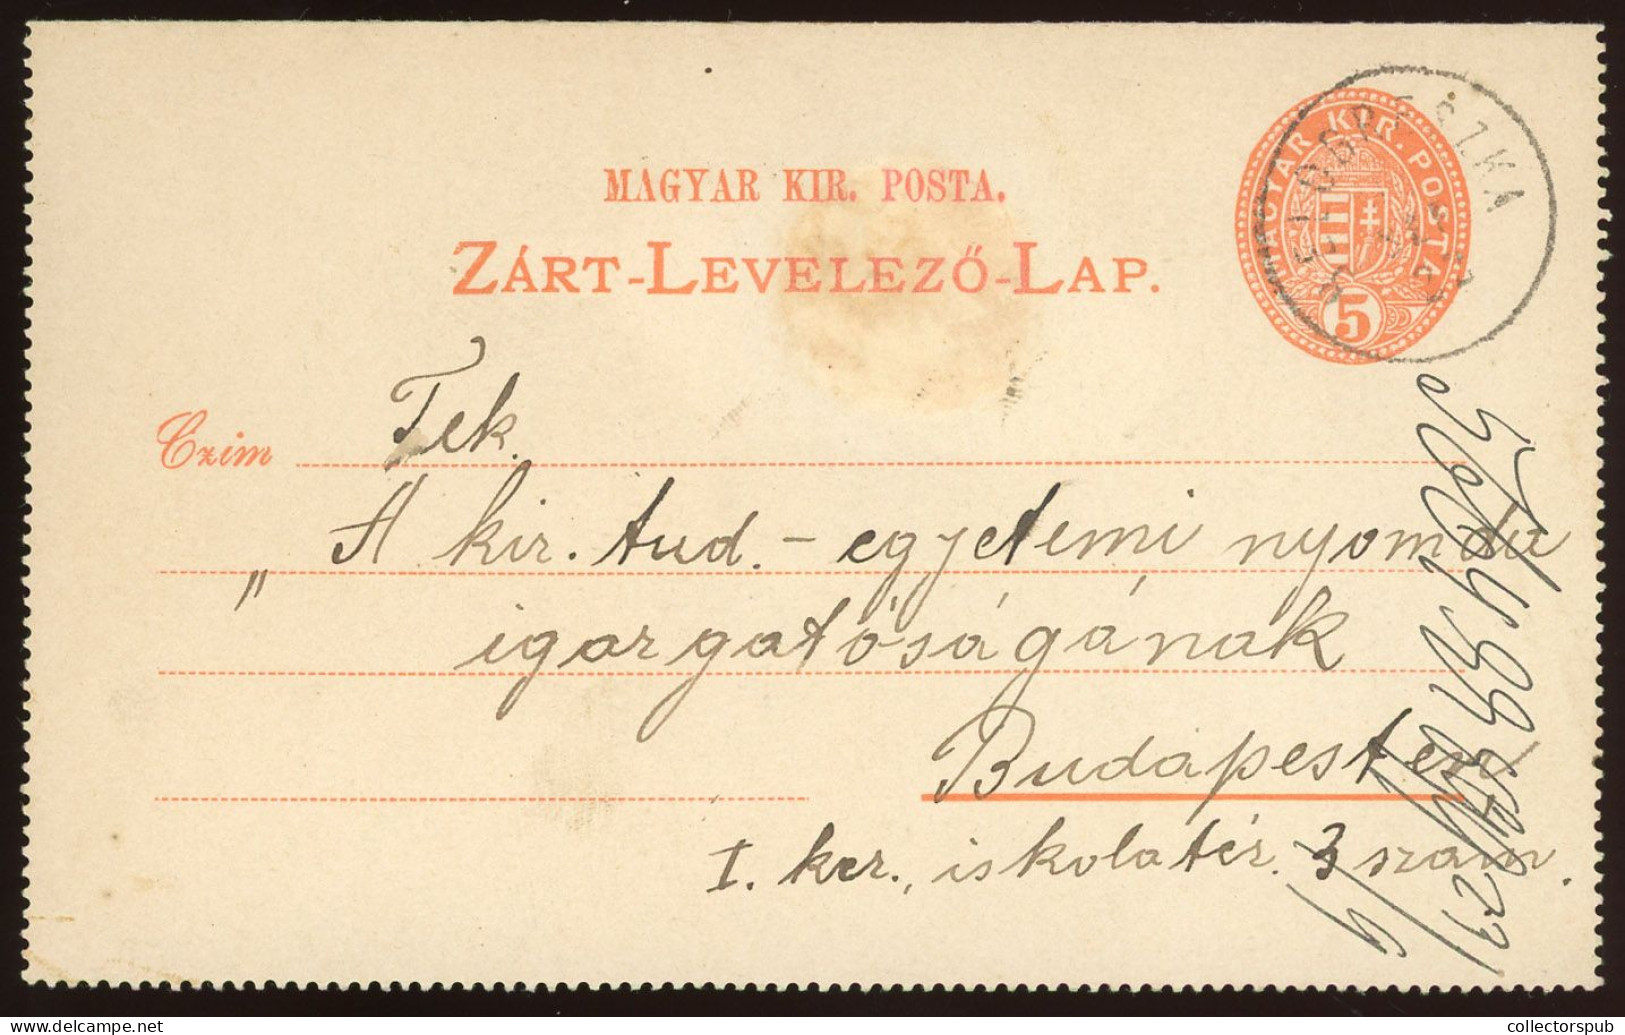 MAGYAR KIR. POSTA.
ZÁRT-LEVELEZŐ-LAP.
MAGYAR KIR. POSTA
5
Czim
Tek.
A kir. tud. - egyetemi nyomda
igazgatóságának
Budapesten
I. ker., iskolatér. 3 szám.
collectorspub